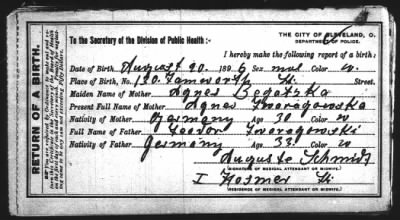 THE CITY OF CLEVELAND, O.
DEPARTMENT OF POLICE.
To the Secretary of the Division of Public Health:
I hereby make the following report of a birth:
Date of Birth, August 20. 1896 Sex mal Color w.
Place of Birth, No. 130. Tamworth St. Street.
Maiden Name of Mother, Agnes
Present Full Name of Mother, Agnes Twaragowska
Nativity of Mother, Germany Age 30 Color w
Full Name of Father, Teodor Twaragowski
Nativity of Father, Germany Age 33 Color w
Auguste Schmidt
(SIGNATURE OF MEDICAL ATTENDANT OR MIDWIFE.)
Hosmer St.
(RESIDENCE OF MEDICAL ATTENDANT OR MIDWIFE.)
RETURN OF A BIRTH.